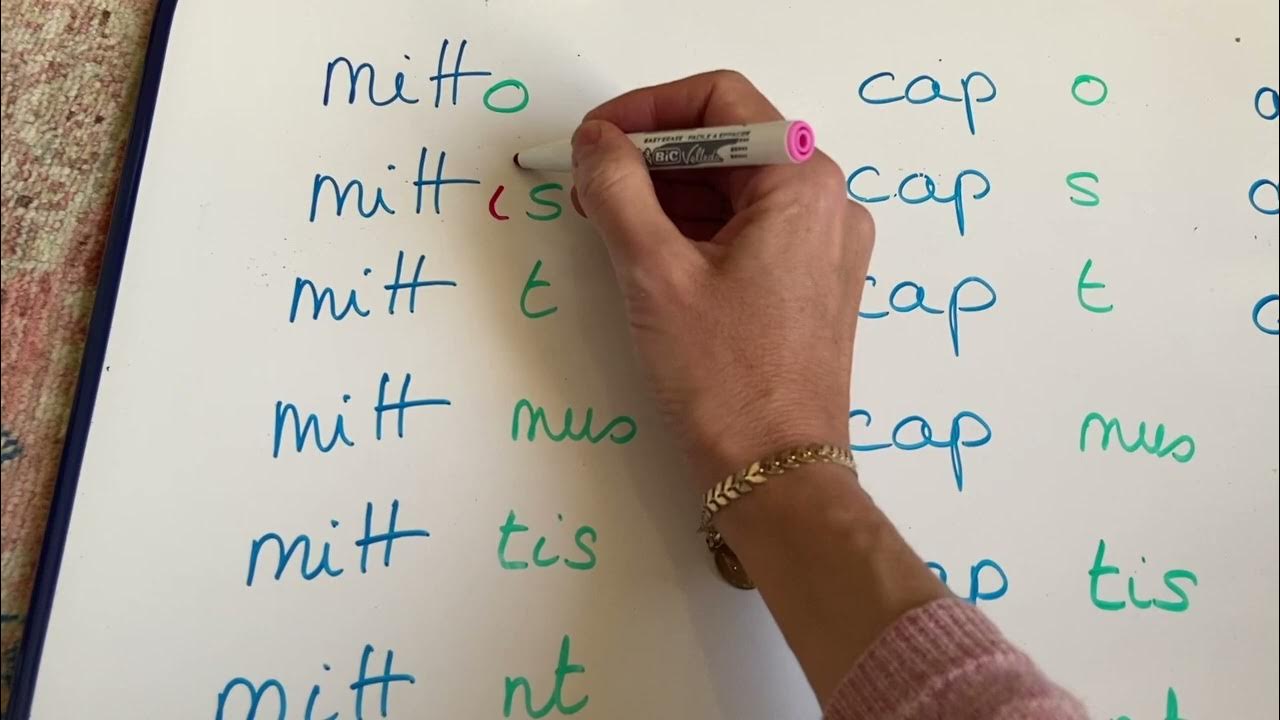 mitto cap o
mittis cap s
mitt t cap t
mitt mus cap mus
mitt tis cap tis
mitt nt nt
BiC Velleda